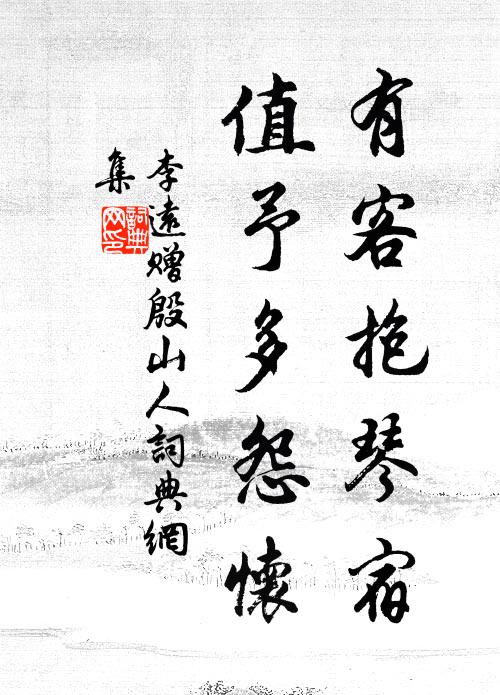 有客抱琴宿
值予多怨懷
李遠贈殷山人詞典網
集
詞典
网印